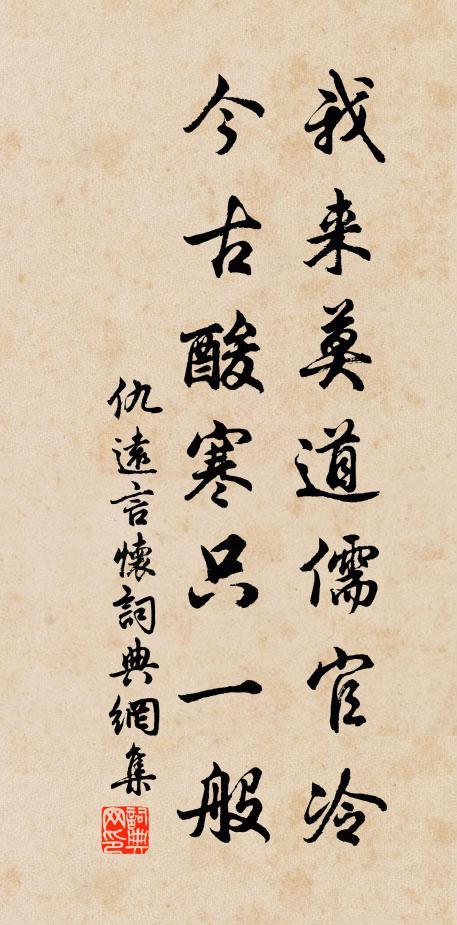 我来莫道儒官冷
今古酸寒只一般
仇遠言懷詞典網集
詞典网印